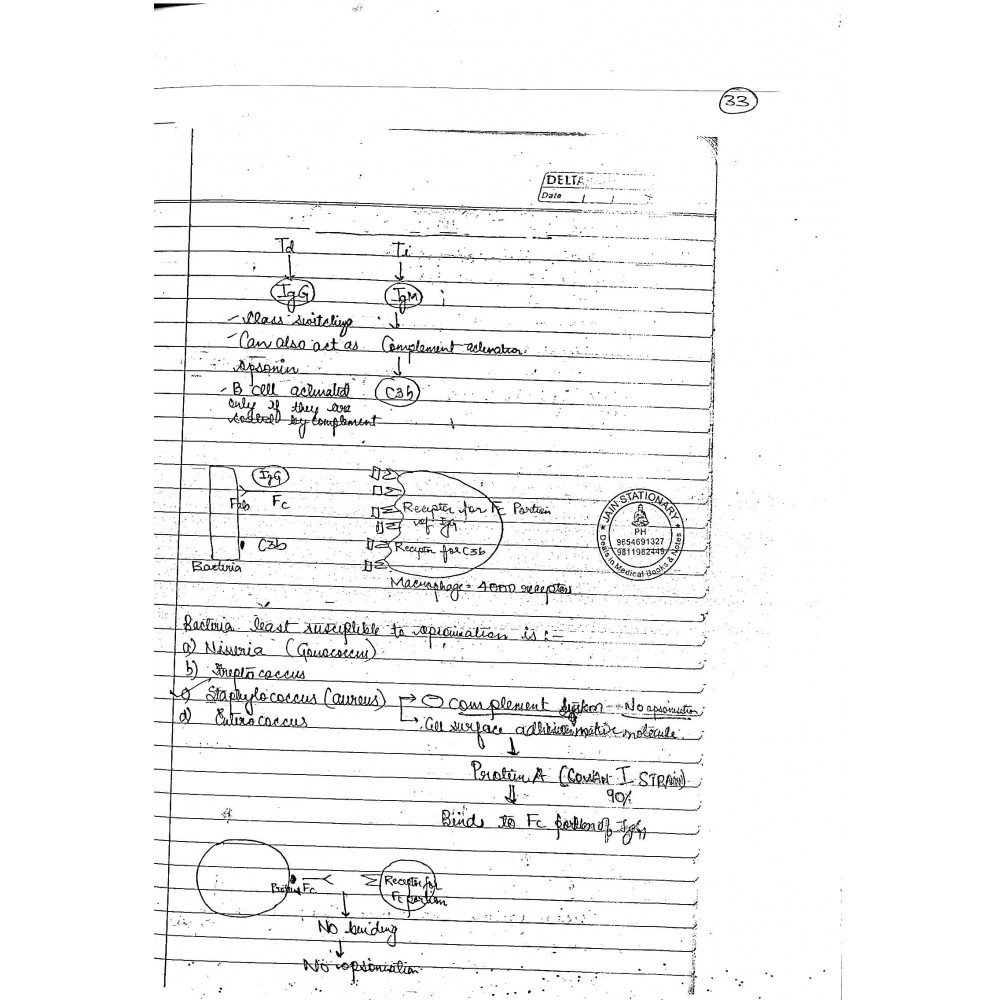 33
DELTA
Date
Td Ti
IgG IgM
- Class switching
- Can also act as Complement activation
opsonin
C3b
- B cell activated
only if they are
coated by complement
IgG
Fab Fc
C3b
Bacteria
Receptor for Fc Portion
of IgG
Receptor for C3b
Macrophage = 4000 receptors
JAIN STATIONARY
PH
9654691327
9811982449
Deals in Medical Books & Notes
Bacteria least susciptible to opsonisation is :-
a) Nisseria (Gonococcus)
b) Streptococcus
c) Staphylococcus (aureus) → ⊖ complement system - No opsonisation
→ Cell surface adhesion molecule
d) Enterococcus
Protein A (COWAN I STRAIN)
90%
Binds to Fc portion of IgG
Protein A Fc
Receptor for
Fc portion
No binding
No opsonisation